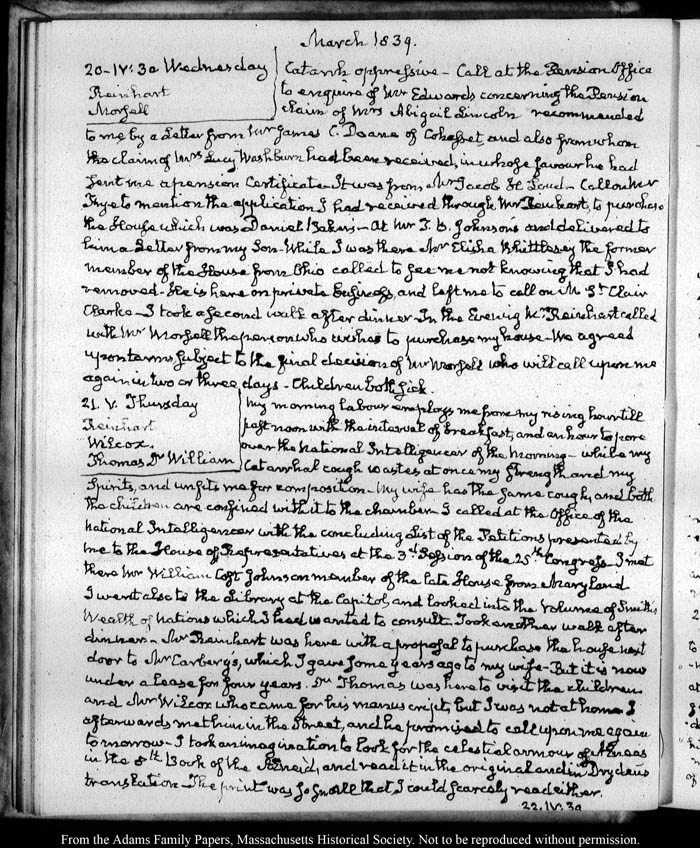 March 1839.
20-IV:30 Wednesday
Reinhart
Morfell
Catarrh oppressive - Call at the Pension Office
to enquire of Mr Edwards concerning the Pension
claim of Mrs Abigail Lincoln recommended
to me by a Letter from Mr James C. Doane of Cohasset, and also from whom
the claim of Mrs Lucy Washburn had been received, in whose favour he had
sent me a pension Certificate - It was from Mr Jacob H. Loud - Call on Mr
Frye to mention the application I had received through Mr Reinhart, to purchase
the House which was Daniel Baker's - At Mr T. B. Johnson's and delivered to
him a Letter from my Son - While I was there Mr Elisha Whittlesey the former
member of the House from Ohio called to see me not knowing that I had
removed - He is here on private business, and left me to call on M. St Clair
Clarke - I took a second walk after dinner - In the Evening Mr Reinhart called
with Mr Morfell the person who wishes to purchase my house - We agreed
upon terms subject to the final decision of Mr Morfell who will call upon me
again in two or three days - Children both sick.
21. V. Thursday
Reinhart
Wilcox.
Thomas Dr William
My morning labour employs me from my rising hour till
past noon with the interval of breakfast, and an hour to pore
over the National Intelligencer of the morning - while my
Catarrhal cough wastes at once my strength and my
Spirits, and unfits me for composition - My wife has the same cough, and both
the children are confined with it to the chamber - I called at the Office of the
National Intelligencer with the concluding List of the Petitions presented by
me to the House of Representatives at the 3d Session of the 25th Congress - I met
there Mr William Cost Johnson member of the late House from Maryland
I went also to the Library at the Capitol, and looked into the Volumes of Smith's
Wealth of Nations which I had wanted to consult - Took another walk after
dinner - Mr Reinhart was here with a proposal to purchase the house next
door to Mr Carbery's, which I gave some years ago to my wife - But it is now
under a lease for four years. Dr Thomas was here to visit the children
and Mr Wilcox who came for his manuscript, but I was not at home I
afterwards met him in the Street, and he promised to call upon me again
to morrow - I took an imagination to look for the celestial armour of Aeneas
in the 8th Book of the Aeneid, and read it in the original and in Dryden's
translation - The print was so small that I could scarcely read either.
22. IV. 30
From the Adams Family Papers, Massachusetts Historical Society. Not to be reproduced without permission.